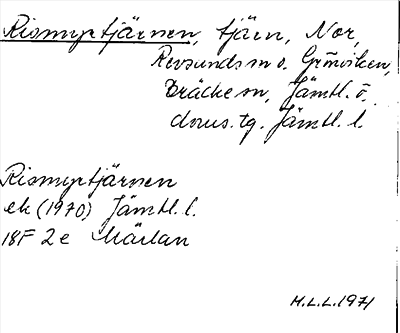 Rismyrtjärnen, tjärn, Nor,
Revsunds m o. Grönviken,
Bräcke m, Jämtl. ö.
doms. tg. Jämtl. l.
Rismyrtjärnen
ek (1970) Jämtl. l.
18F 2e Mårlan
M.L.L. 1971